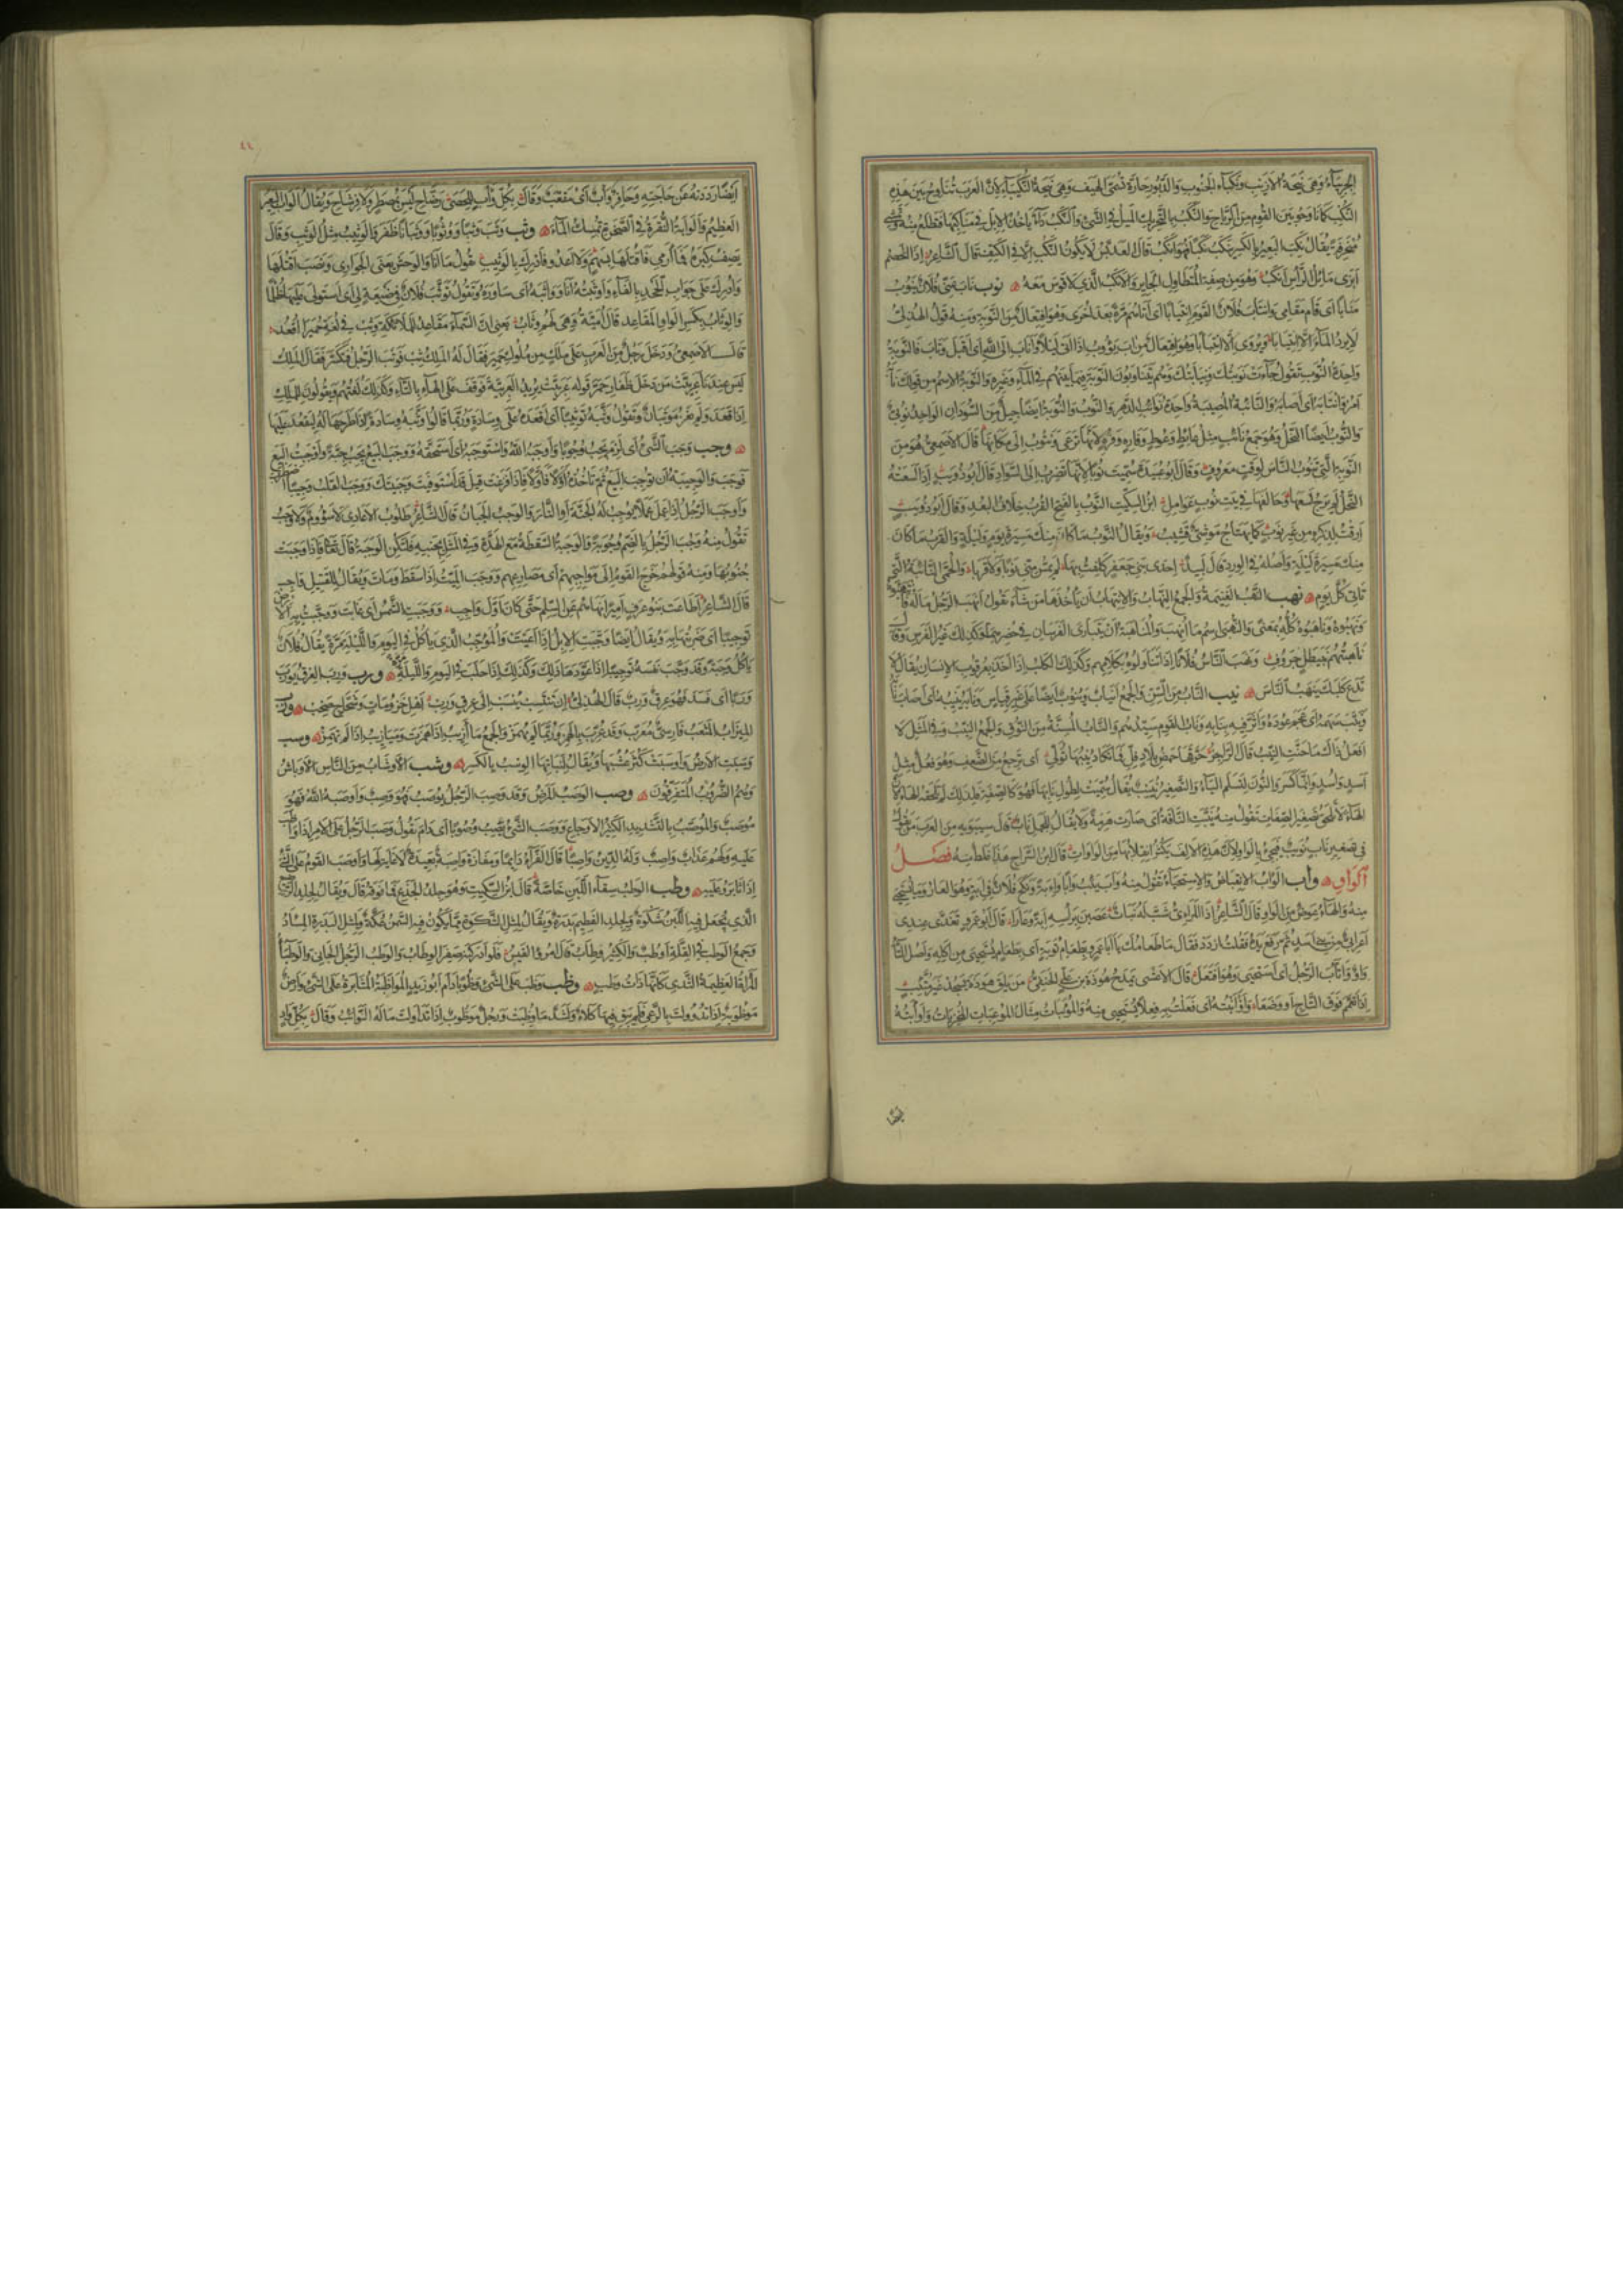 الجربياء وهي نيحة الازيب ونكباء الجنوب والدبور حارة تسمى الهيف وهي نيحة النكيباء لان العرب تناوح بين هذه
النكب كما ناوحوا بين القوم من الرياح والنكب بالتحريك الميل في الشئ والنكب داء ياخذ الابل في مناكبها فتظلع منه وتمشي
منحرفة يقال نكب البعير بالكسر ينكب نكبا فهو انكب قال العدبس لا يكون النكب الا في الكتف قال الشاعر اذا الخصم
ابزى مائل الراس انكب وهو من صفة المتطاول الجاير والانكب الذي لا قوس معه نوب ناب عني فلان ينوب
منابا اى قام مقامى وانتاب فلان القوم انتيابا اى اتاهم مرة بعد اخرى وهو افتعال من النوبة ومنه قول الهذلى
لا يرد الماء الا انتيابا ويروى الا ائتيابا وهو افتعال من اب يؤوب اذا اتى ليلا واناب الى الله اى اقبل وتاب فالنوبة
واحدة النوب تقول جاءت نوبتك ونيابتك وهم يتناوبون النوبة فيما بينهم في الماء وغيره والنوبة الاسم من قولك نابه
امر وانتابه اى اصابه والنائبة المصيبة واحدة نوائب الدهر والنوب والنوبة ايضا جيل من السودان الواحد نوبى
والنوب ايضا النحل وهو جمع نائب مثل عائط وعوط وفاره وفره لانها ترعى وتنوب الى مكانها قال الاصمعى هو من
النوبة التي تنوب الناس لوقت معروف وقال ابو عبيدة سميت نوبا لانها تضرب الى السواد قال ابو ذويب اذا لسعته
النحل لم يرج لسعها وحالفها في بيت نوب عوامل ابن السكيت النوب بالفتح القرب خلاف البعد وقال ابو ذويب
ارقت لذكره من غير نوب كما يهتاج موشى قشيب ويقال النوب ما كان منك مسيرة يوم وليلة والقرب ما كان
منك مسيرة ليلة واصله في الورد قال لبيد احدى بنى جعفر كلفت بها لم تمس منى نوبا ولا قربا والحمى النائبة التي
تاتى كل يوم نهب النهب الغنيمة والجمع النهاب والانتهاب ان ياخذها من شاء تقول انهب الرجل ماله فانتهبوه
ونهبوه وناهبوه كله بمعنى والنهبى اسم ما انهب والمناهبة ان يتبارى الفرسان في حضرهما وكذلك غير الفرس وقال
ناهبتهم بنيطل جروف ونهب الناس فلانا اذا تناولوه بكلامهم وكذلك الكلب اذا اخذ بعرقوب الانسان يقال لا
تدع كلبك ينهب الناس نيب الناب من السن والجمع انياب ونيوب ايضا على غير قياس ونابه ينيبه اى اصاب نابه
ونيب سهمه اى عجم عوده واثر فيه بنابه وناب القوم سيدهم والناب المسنة من النوق والجمع النيب وفي المثل لا
افعل ذاك ما حنت النيب قال الراجز حرقها حمض بلاد فل فما تكاد نيبها تولى اى ترجع من الضعف وهو فعل مثل
اسد واسد وانما كسروا النون لتسلم الياء والتصغير نييب يقال سميت لطول نابها فهو كالصفة فلذلك لم تلحقه الهاء لان
الهاء لا تلحق تصغير الصفات تقول منه نيبت الناقة اى صارت هرمة ولا يقال للجمل ناب قال سيبويه من العرب من يقول
في تصغير ناب نويب فيجئ بالواو لان هذه الالف يكثر انقلابها من الواوات قال ابن السراج هذا غلط منه فصل
الواو وأب الوأب الانقباض والاستحياء تقول منه وأب يئب وأبا وإبة ونكح فلان في إبة وهو العار وما يستحيى
منه والهاء عوض من الواو قال الشاعر اذا المرئى شب له بنات عصبن براسه ابة وعارا قال ابو عمرو تغدى عندى
اعرابى من بنى اسد ثم رفع يده فقلت ازدد فقال ما طعامك يا ابا عمرو بطعام تؤبة اى بطعام يستحيى من اكله واصل التاء
واو واتأب الرجل اى استحيى وهو افتعل قال الاعشى يمدح هوذة بن على الحنفى من يلق هوذة يسجد غير متئب
اذا تعمم فوق التاج او وضعا واوأبته اى فعلت به فعلا يستحيى منه والموئبات مثال الموعبات المخزيات واوأبته
ايضا
ايضا رددته عن حاجته وحافر وأب اى مقعب وقال بكل وأب للحصى رضاح ليس بمصطر ولا فرشاح ويقال الوأب البعير
العظيم والوأبة النقرة في الصخرة تمسك الماء وثب وثب وثبا ووثوبا ووثبانا ظفر والوثيب مثل الوثب وقال
يصف كبره فما ارمى فاقتلها بسهمى ولا اعدو فادرك بالوثيب يقول ما انا والوحش يعنى الجوارى ونصب اقتلها
وادرك على جواب الجحد بالفاء واوثبته انا وواثبه اى ساوره وتقول توثب فلان في ضيعة لى اى استولى عليها ظلما
والوثاب بكسر الواو المقاعد قال امية وهى لهم وثاب يعنى ان السماء مقاعد للملائكة وثب في لغة حمير اقعد
قال الاصمعى ودخل رجل من العرب على ملك من ملوك حمير فقال له الملك ثب فوثب الرجل فتكسر فقال الملك
ليس عندنا عربيت من دخل ظفار حمر قوله عربيت يريد العربية فوقف على الهاء بالتاء وكذلك لغتهم ويقولون للملك
اذا قعد ولم يغز موثبان وتقول وثبه توثيبا اى اقعده على وسادة وربما قالوا وثبه وسادة اذا طرحها له ليقعد عليها
وجب وجب الشئ اى لزم يجب وجوبا واوجبه الله واستوجبه اى استحقه ووجب البيع يجب جبة واوجبت البيع
فوجب والوجيبة ان توجب البيع ثم تاخذه اولا فاولا فاذا فرغت قيل قد استوفيت وجيبتك ووجب القلب وجيبا اضطرب
واوجب الرجل اذا عمل عملا يوجب له الجنة او النار والوجب الجبان قال الشاعر طلوب الاعادى لا سؤوم ولا وجب
تقول منه وجب الرجل بالضم وجوبة والوجبة السقطة مع الهدة وفي المثل بجنبه فلتكن الوجبة قال تعالى فاذا وجبت
جنوبها ومنه قولهم خرج القوم الى مواجبهم اى مصارعهم ووجب الميت اذا سقط ومات ويقال للقتيل واجب
قال الشاعر اطاعت بنو عوف اميرا نهاهم عن السلم حتى كان اول واجب ووجبت الشمس اى غابت ووجبت به الارض
توجيبا اى ضربتها به ويقال ايضا وجبت الابل اذا اعيت والموجب الذى ياكل في اليوم والليلة مرة يقال فلان
ياكل وجبة وقد وجب نفسه توجيبا اذا عودها ذلك وكذلك اذا حلب في اليوم والليلة مرة ورب ورب العرق يورب
وربا اى فسد فهو عرق ورب قال الهذلى ان تنتسب تنسب الى عرق ورب اهل خزومات وشحاج صخب وزب
الميزاب المثعب فارسى معرب وقد عرب بالهمز وربما لم يهمز والجمع مآزيب اذا همزت وميازيب اذا لم تهمز وسب
وسبت الارض واوسبت كثر عشبها ويقال لنباتها الوسب بالكسر وشب الاوشاب من الناس الاوباش
وهم الضروب المتفرقون وصب الوصب المرض وقد وصب الرجل يوصب فهو وصب واوصبه الله فهو
موصب والموصب بالتشديد الكثير الاوجاع ووصب الشئ يصب وصوبا اى دام تقول وصب الرجل على الامر اذا واظب
عليه ولهم عذاب واصب وله الدين واصبا قال الفراء دايما ومفازة واصبة بعيدة لا غاية لها واوصب القوم على الشئ
اذا ثابروا عليه وطب الوطب سقاء اللبن خاصة قال ابن السكيت وهو جلد الجذع فما فوقه قال ويقال لجلد الرضيع
الذى يجعل فيه اللبن شكوة ولجلد الفطيم بدرة ويقال لمثل الشكوة مما يكون فيه السمن عكة ولمثل البدرة المسأد
وجمع الوطب في القلة اوطب والكثير وطاب قال امرؤ القيس فلو ادركنه صفر الوطاب والوطب الرجل الجافى والوطباء
المراة العظيمة الثدى كانها ذات وطب وظب وظب على الشئ وظوبا دام ابو زيد المواظبة المثابرة على الشئ وارض
موظوبة اذا تدوولت بالرعى فلم يبق فيها كلاء ولشد ما وظبت ورجل موظوب اذا تداولت ماله النوائب وقال بكل واد